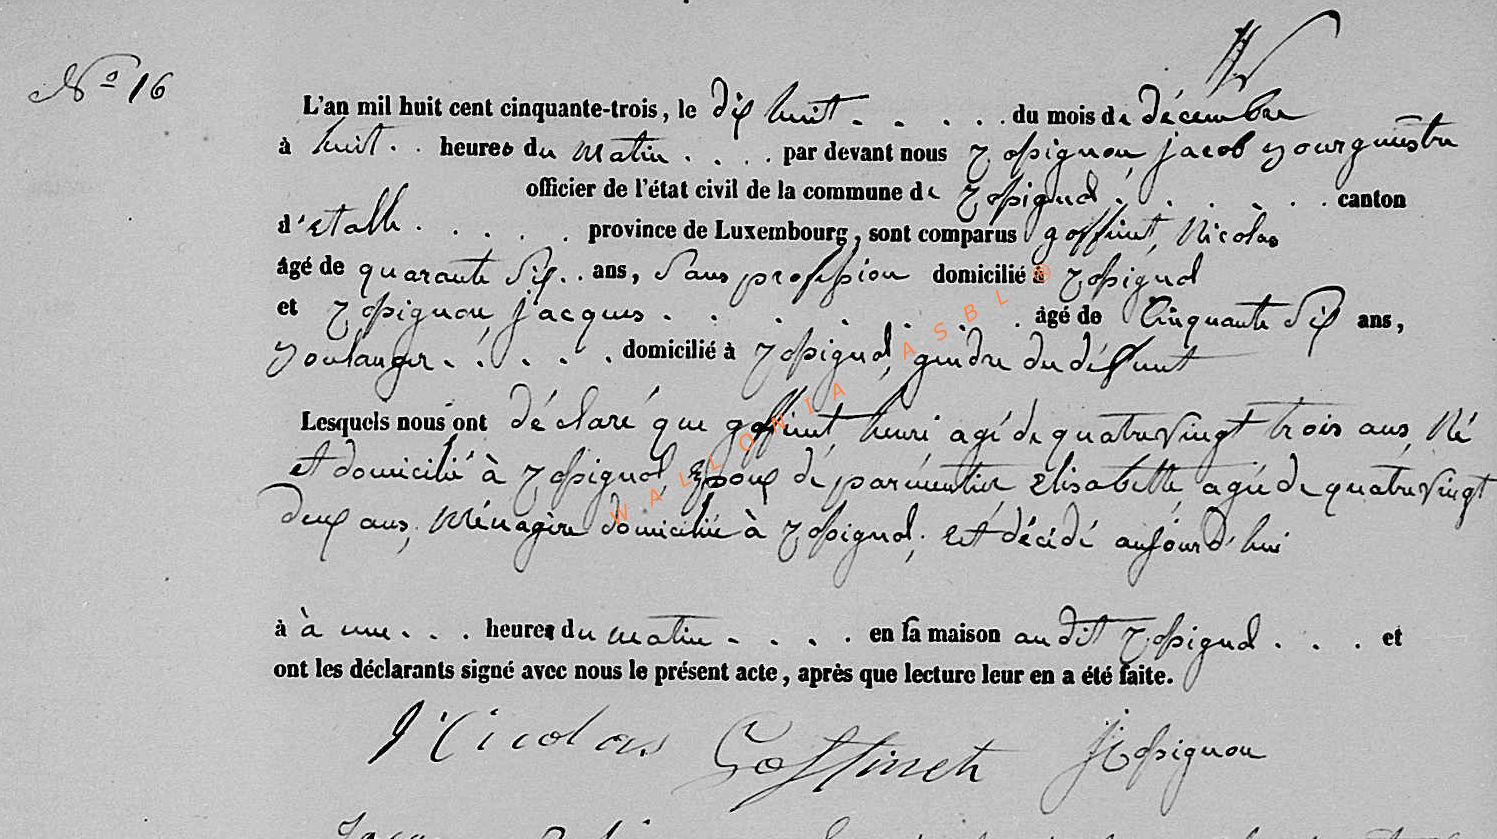 No 16
L'an mil huit cent cinquante-trois, le dix huit . . . . . du mois de décembre
à huit . . heures du matin . . . . par devant nous rossignon, jacob bourguestre
officier de l'état civil de la commune de rossignol . . . . . . canton
d'etalle . . . . . province de Luxembourg, sont comparus goffinet, Nicolas
âgé de quarante six . . ans, sans profession domicilié à rossignol
et rossignon, jacques . . . . . . . . âgé de Cinquante six ans,
boulanger . . . . . domicilié à rossignol, gendre du défunt
Lesquels nous ont déclaré que goffinet, henri agé de quatrevingt trois ans, Né
et domicilié à rossignol, Epoux de parmentier Elisabette, agée de quatrevingt
deux ans, Ménagère domiciliée à rossignol, est décédé aujourd'hui
à à une . . . heures du matin . . . . en sa maison audit rossignol . . . et
ont les déclarants signé avec nous le présent acte, après que lecture leur en a été faite.
Nicolas Goffinet JRossignon
WALLONIA ASBL ©